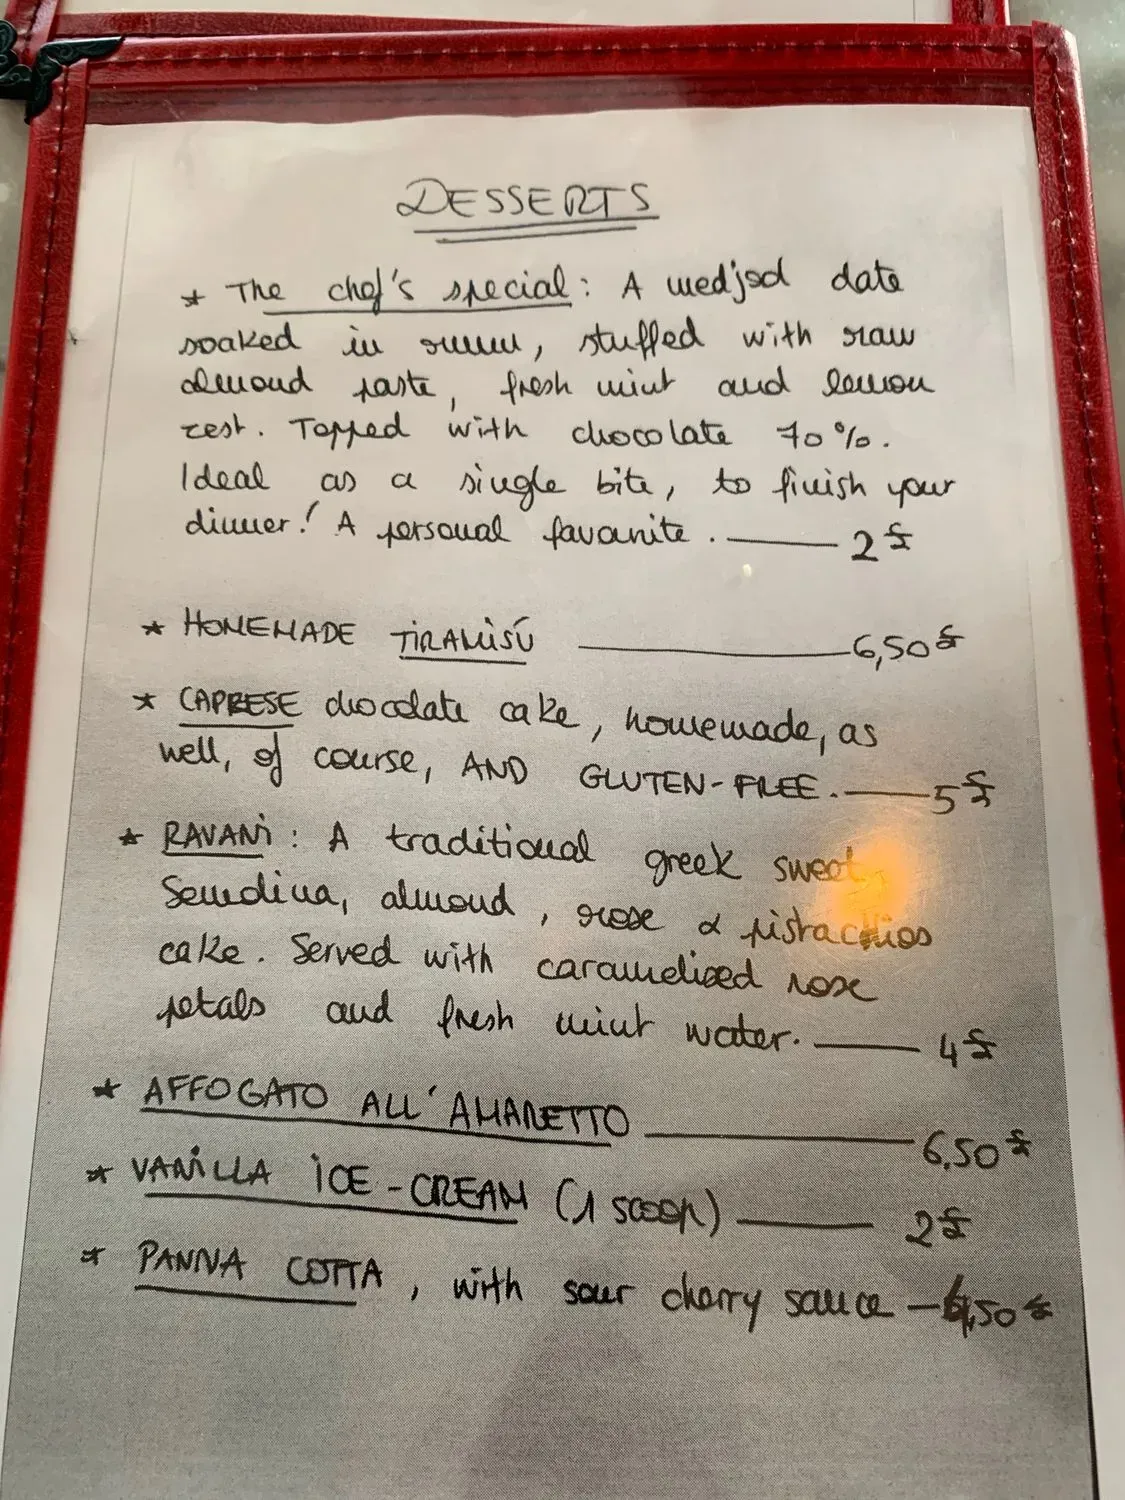 DESSERTS
* The chef's special: A medjod date
soaked in rum, stuffed with raw
almond paste, fresh mint and lemon
zest. Topped with chocolate 70%.
Ideal as a single bite, to finish your
dinner! A personal favorite. — 2 £
* HOMEMADE TIRAMISÚ — 6,50 £
* CAPRESE chocolate cake, homemade, as
well, of course, AND GLUTEN-FREE. — 5 £
* RAVANI: A traditional greek sweet
Semolina, almond, rose & pistachios
cake. Served with caramelized rose
petals and fresh mint water. — 4 £
* AFFOGATO ALL'AMARETTO — 6,50 £
* VANILLA ICE-CREAM (1 scoop) — 2 £
* PANNA COTTA, with sour cherry sauce — ,50 £